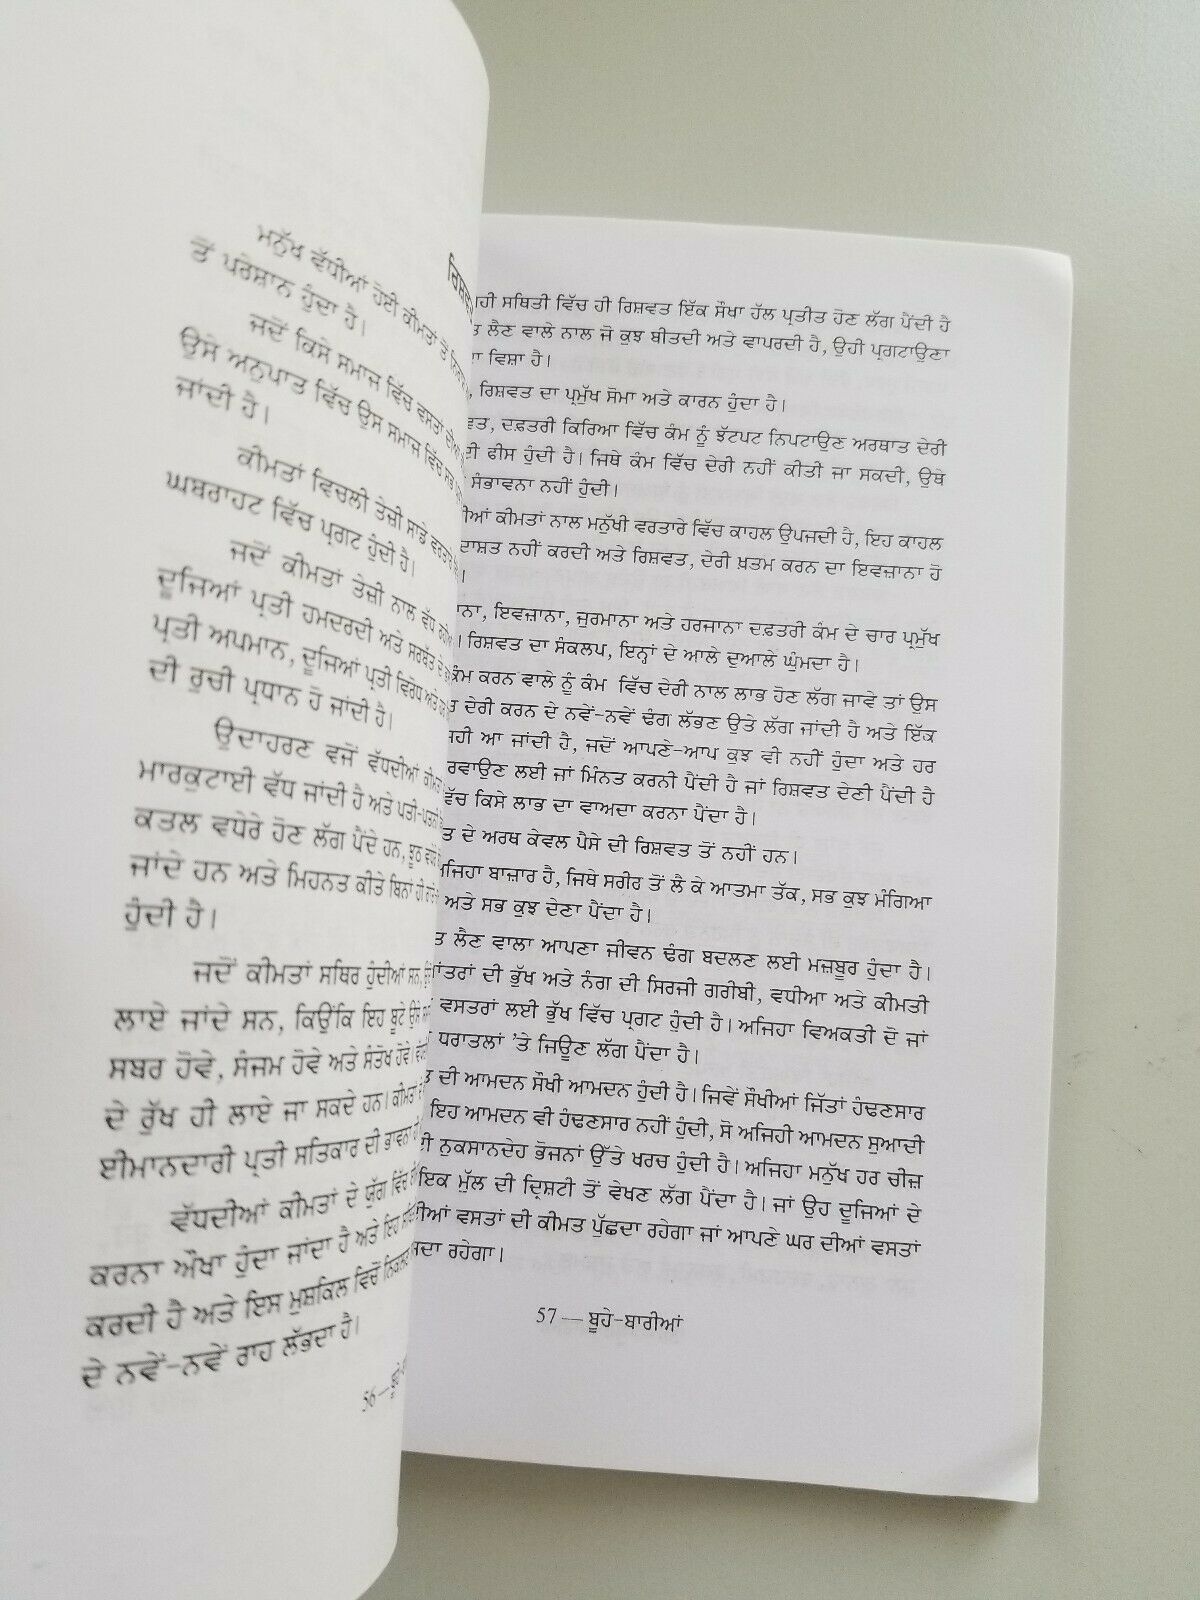 ਮਨੁੱਖ ਵੱਧੀਆਂ ਹੋਈ ਕੀਮਤਾਂ ਤੋਂ
ਤੋਂ ਪਰੇਸ਼ਾਨ ਹੁੰਦਾ ਹੈ।
ਜਦੋਂ ਕਿਸੇ ਸਮਾਜ ਵਿੱਚ ਵਸਤਾਂ ਦੀਆਂ
ਉਸੇ ਅਨੁਪਾਤ ਵਿੱਚ ਉਸ ਸਮਾਜ ਵਿੱਚ
ਜਾਂਦੀ ਹੈ।
ਕੀਮਤਾਂ ਵਿਚਲੀ ਤੇਜ਼ੀ ਸਾਡੇ
ਘਬਰਾਹਟ ਵਿੱਚ ਪ੍ਰਗਟ ਹੁੰਦੀ ਹੈ।
ਜਦੋਂ ਕੀਮਤਾਂ ਤੇਜ਼ੀ ਨਾਲ ਵੱਧ
ਦੂਜਿਆਂ ਪ੍ਰਤੀ ਹਮਦਰਦੀ ਅਤੇ ਸਰਬੱਤ ਦੇ
ਪ੍ਰਤੀ ਅਪਮਾਨ, ਦੂਜਿਆਂ ਪ੍ਰਤੀ ਵਿਰੋਧ ਅਤੇ
ਦੀ ਰੁਚੀ ਪ੍ਰਧਾਨ ਹੋ ਜਾਂਦੀ ਹੈ।
ਉਦਾਹਰਣ ਵਜੋਂ ਵੱਧਦੀਆਂ
ਮਾਰਕੁਟਾਈ ਵੱਧ ਜਾਂਦੀ ਹੈ ਅਤੇ ਪਤੀ-ਪਤਨੀ
ਕਤਲ ਵਧੇਰੇ ਹੋਣ ਲੱਗ ਪੈਂਦੇ ਹਨ, ਝੂਠ
ਜਾਂਦੇ ਹਨ ਅਤੇ ਮਿਹਨਤ ਕੀਤੇ ਬਿਨਾਂ ਹੀ
ਹੁੰਦੀ ਹੈ।
ਜਦੋਂ ਕੀਮਤਾਂ ਸਥਿਰ ਹੁੰਦੀਆਂ ਸਨ,
ਲਾਏ ਜਾਂਦੇ ਸਨ, ਕਿਉਂਕਿ ਇਹ ਬੂਟੇ ਉਸੇ
ਸਬਰ ਹੋਵੇ, ਸੰਜਮ ਹੋਵੇ ਅਤੇ ਸੰਤੋਖ ਹੋਵੇ।
ਦੇ ਰੁੱਖ ਹੀ ਲਾਏ ਜਾ ਸਕਦੇ ਹਨ। ਕੀਮਤਾਂ
ਈਮਾਨਦਾਰੀ ਪ੍ਰਤੀ ਸਤਿਕਾਰ ਦੀ ਭਾਵਨਾ
ਵੱਧਦੀਆਂ ਕੀਮਤਾਂ ਦੇ ਯੁੱਗ ਵਿੱਚ
ਕਰਨਾ ਔਖਾ ਹੁੰਦਾ ਜਾਂਦਾ ਹੈ ਅਤੇ ਇਹ
ਕਰਦੀ ਹੈ ਅਤੇ ਇਸ ਮੁਸ਼ਕਿਲ ਵਿਚੋਂ
ਦੇ ਨਵੇਂ-ਨਵੇਂ ਰਾਹ ਲੱਭਦਾ ਹੈ।
56 —
ਸਥਿਤੀ ਵਿੱਚ ਹੀ ਰਿਸ਼ਵਤ ਇੱਕ ਸੌਖਾ ਹੱਲ ਪ੍ਰਤੀਤ ਹੋਣ ਲੱਗ ਪੈਂਦੀ ਹੈ
ਲੈਣ ਵਾਲੇ ਨਾਲ ਜੋ ਕੁਝ ਬੀਤਦੀ ਅਤੇ ਵਾਪਰਦੀ ਹੈ, ਉਹੀ ਪ੍ਰਗਟਾਉਣਾ
ਵਿਸ਼ਾ ਹੈ।
ਰਿਸ਼ਵਤ ਦਾ ਪ੍ਰਮੁੱਖ ਸੋਮਾ ਅਤੇ ਕਾਰਨ ਹੁੰਦਾ ਹੈ।
ਦਫ਼ਤਰੀ ਕਿਰਿਆ ਵਿੱਚ ਕੰਮ ਨੂੰ ਝੱਟਪਟ ਨਿਪਟਾਉਣ ਅਰਥਾਤ ਦੇਰੀ
ਦੀ ਫੀਸ ਹੁੰਦੀ ਹੈ। ਜਿਥੇ ਕੰਮ ਵਿੱਚ ਦੇਰੀ ਨਹੀਂ ਕੀਤੀ ਜਾ ਸਕਦੀ, ਉਥੇ
ਸੰਭਾਵਨਾ ਨਹੀਂ ਹੁੰਦੀ।
ਕੀਮਤਾਂ ਨਾਲ ਮਨੁੱਖੀ ਵਰਤਾਰੇ ਵਿੱਚ ਕਾਹਲ ਉਪਜਦੀ ਹੈ, ਇਹ ਕਾਹਲ
ਨਹੀਂ ਕਰਦੀ ਅਤੇ ਰਿਸ਼ਵਤ, ਦੇਰੀ ਖ਼ਤਮ ਕਰਨ ਦਾ ਇਵਜ਼ਾਨਾ ਹੋ
ਇਵਜ਼ਾਨਾ, ਜੁਰਮਾਨਾ ਅਤੇ ਹਰਜਾਨਾ ਦਫ਼ਤਰੀ ਕੰਮ ਦੇ ਚਾਰ ਪ੍ਰਮੁੱਖ
ਰਿਸ਼ਵਤ ਦਾ ਸੰਕਲਪ, ਇਨ੍ਹਾਂ ਦੇ ਆਲੇ ਦੁਆਲੇ ਘੁੰਮਦਾ ਹੈ।
ਕੰਮ ਕਰਨ ਵਾਲੇ ਨੂੰ ਕੰਮ ਵਿੱਚ ਦੇਰੀ ਨਾਲ ਲਾਭ ਹੋਣ ਲੱਗ ਜਾਵੇ ਤਾਂ ਉਸ
ਦੇਰੀ ਕਰਨ ਦੇ ਨਵੇਂ-ਨਵੇਂ ਢੰਗ ਲੱਭਣ ਉਤੇ ਲੱਗ ਜਾਂਦੀ ਹੈ ਅਤੇ ਇੱਕ
ਆ ਜਾਂਦੀ ਹੈ, ਜਦੋਂ ਆਪਣੇ-ਆਪ ਕੁਝ ਵੀ ਨਹੀਂ ਹੁੰਦਾ ਅਤੇ ਹਰ
ਲਈ ਜਾਂ ਮਿੰਨਤ ਕਰਨੀ ਪੈਂਦੀ ਹੈ ਜਾਂ ਰਿਸ਼ਵਤ ਦੇਣੀ ਪੈਂਦੀ ਹੈ
ਕਿਸੇ ਲਾਭ ਦਾ ਵਾਅਦਾ ਕਰਨਾ ਪੈਂਦਾ ਹੈ।
ਦੇ ਅਰਥ ਕੇਵਲ ਪੈਸੇ ਦੀ ਰਿਸ਼ਵਤ ਤੋਂ ਨਹੀਂ ਹਨ।
ਬਾਜ਼ਾਰ ਹੈ, ਜਿਥੇ ਸਰੀਰ ਤੋਂ ਲੈ ਕੇ ਆਤਮਾ ਤੱਕ, ਸਭ ਕੁਝ ਮੰਗਿਆ
ਅਤੇ ਸਭ ਕੁਝ ਦੇਣਾ ਪੈਂਦਾ ਹੈ।
ਲੈਣ ਵਾਲਾ ਆਪਣਾ ਜੀਵਨ ਢੰਗ ਬਦਲਣ ਲਈ ਮਜ਼ਬੂਰ ਹੁੰਦਾ ਹੈ।
ਦੀ ਭੁੱਖ ਅਤੇ ਨੰਗ ਦੀ ਸਿਰਜੀ ਗਰੀਬੀ, ਵਧੀਆ ਅਤੇ ਕੀਮਤੀ
ਵਸਤਰਾਂ ਲਈ ਭੁੱਖ ਵਿੱਚ ਪ੍ਰਗਟ ਹੁੰਦੀ ਹੈ। ਅਜਿਹਾ ਵਿਅਕਤੀ ਦੋ ਜਾਂ
ਧਰਾਤਲਾਂ 'ਤੇ ਜਿਊਣ ਲੱਗ ਪੈਂਦਾ ਹੈ।
ਦੀ ਆਮਦਨ ਸੌਖੀ ਆਮਦਨ ਹੁੰਦੀ ਹੈ। ਜਿਵੇਂ ਸੌਖੀਆਂ ਜਿੱਤਾਂ ਹੰਢਣਸਾਰ
ਇਹ ਆਮਦਨ ਵੀ ਹੰਢਣਸਾਰ ਨਹੀਂ ਹੁੰਦੀ, ਸੋ ਅਜਿਹੀ ਆਮਦਨ ਸੁਆਦੀ
ਨੁਕਸਾਨਦੇਹ ਭੋਜਨਾਂ ਉੱਤੇ ਖਰਚ ਹੁੰਦੀ ਹੈ। ਅਜਿਹਾ ਮਨੁੱਖ ਹਰ ਚੀਜ਼
ਇਕ ਮੁੱਲ ਦੀ ਦ੍ਰਿਸ਼ਟੀ ਤੋਂ ਵੇਖਣ ਲੱਗ ਪੈਂਦਾ ਹੈ। ਜਾਂ ਉਹ ਦੂਜਿਆਂ ਦੇ
ਵਸਤਾਂ ਦੀ ਕੀਮਤ ਪੁੱਛਦਾ ਰਹੇਗਾ ਜਾਂ ਆਪਣੇ ਘਰ ਦੀਆਂ ਵਸਤਾਂ
ਰਹੇਗਾ।
57 — ਬੂਹੇ-ਬਾਰੀਆਂ